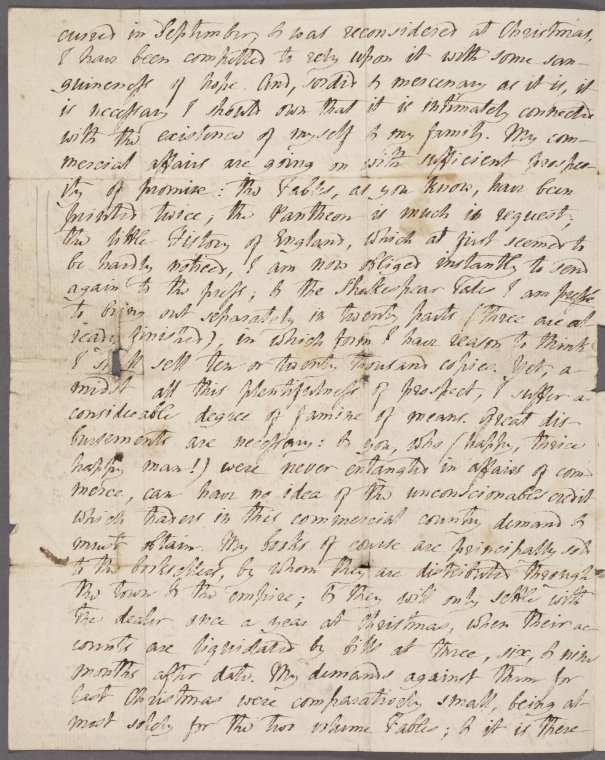 curred in September, & was reconsidered at Christmas,
I have been compelled to rely upon it with some san-
guineness of hope. And, sordid & mercenary as it is, it
is necessary I should own that it is intimately connected
with the existence of myself & my family. My com-
mercial affairs are going on with sufficient prosper-
ity of promise: the Fables, as you know, have been
printed twice; the Pantheon is much in request;
the little History of England, which at first seemed to
be hardly noticed, I am now obliged instantly to send
again to the press; & the Shakespear Tales I am
to bring out separately in twenty parts (three are al-
ready finished), in which form I have reason to think
I shall sell ten or twenty thousand copies. Yet, a-
midst all this plentifulness of prospect, I suffer a
considerable degree of famine of means. Great dis-
bursements are necessary: & you, who (happy, thrice
happy man!) were never entangled in affairs of com-
merce, can have no idea of the unconscionable credit
which traders in this commercial country demand &
must obtain. My books of course are principally sold
to the booksellers, by whom they are distributed through
the town & the empire; & they will only settle with
the dealer once a year at Christmas, when their ac-
counts are liquidated by bills at three, six, & nine
months after date. My demands against them for
last Christmas were comparatively small, being al-
most solely for the two volume Fables; & it is there-